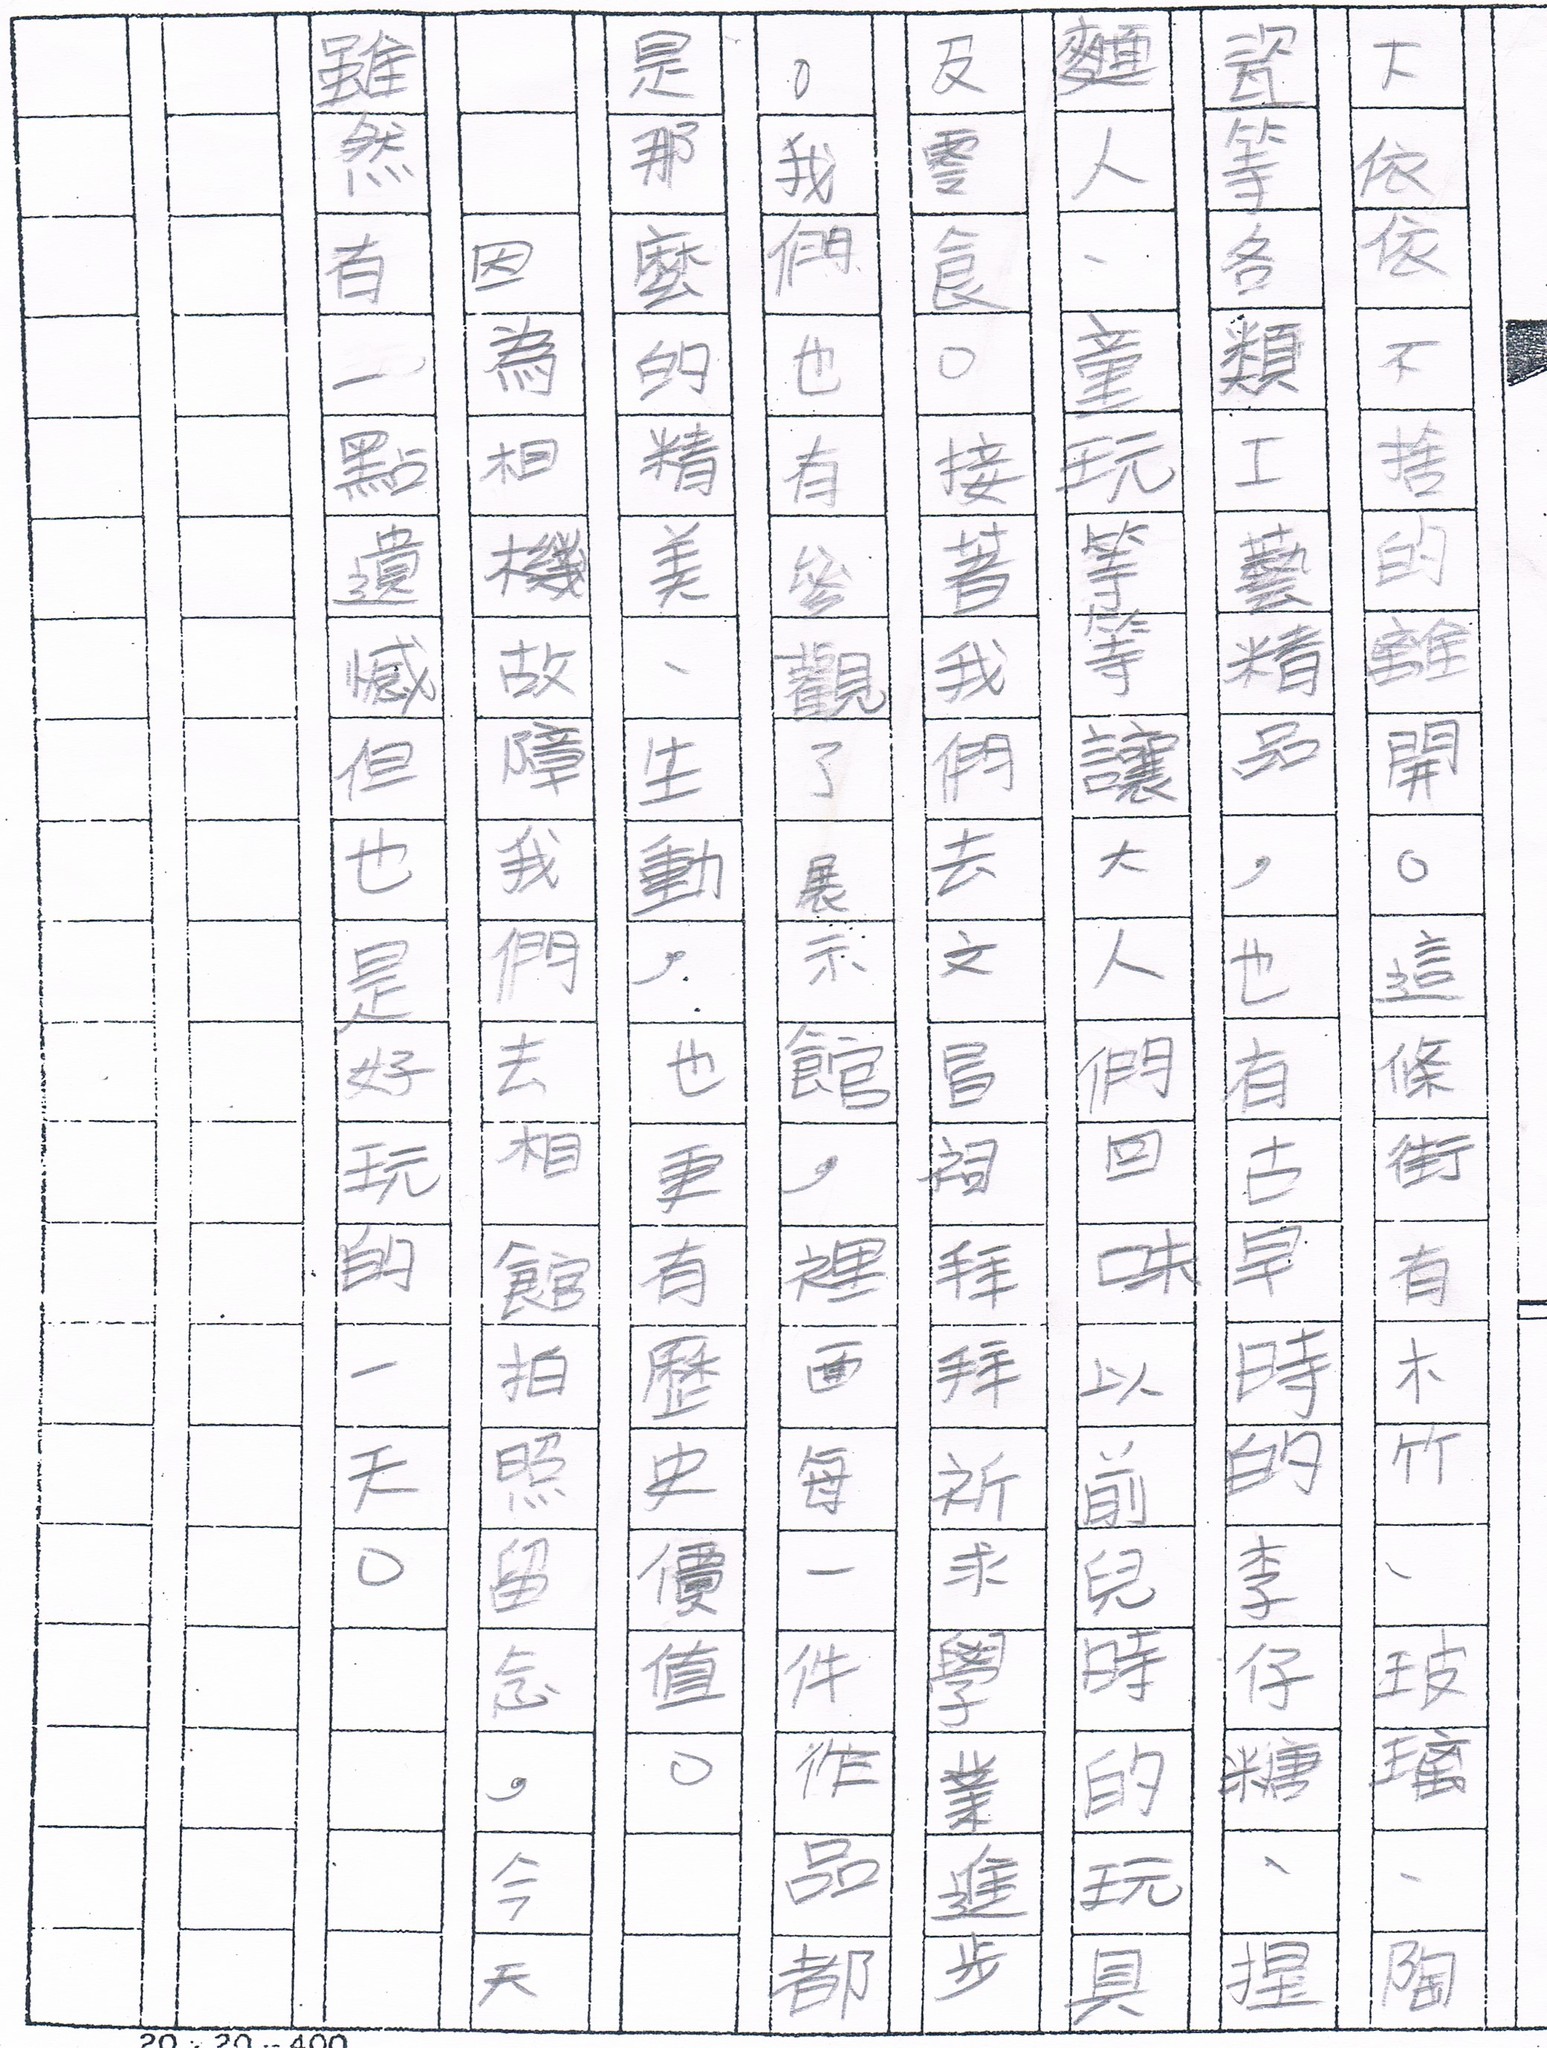 下依依不捨的離開。這條街有木竹、玻璃、陶
瓷等各類工藝精品，也有古早時的李仔糖、捏
麵人、童玩等等讓大人們回味以前兒時的玩具
及零食。接著我們去文昌祠拜拜祈求學業進步
。我們也有參觀了展示館，裡面每一件作品都
是那麼的精美、生動，也更有歷史價值。
因為相機故障我們去相館拍照留念，今天
雖然有一點遺憾但也是好玩的一天。
20×20=400